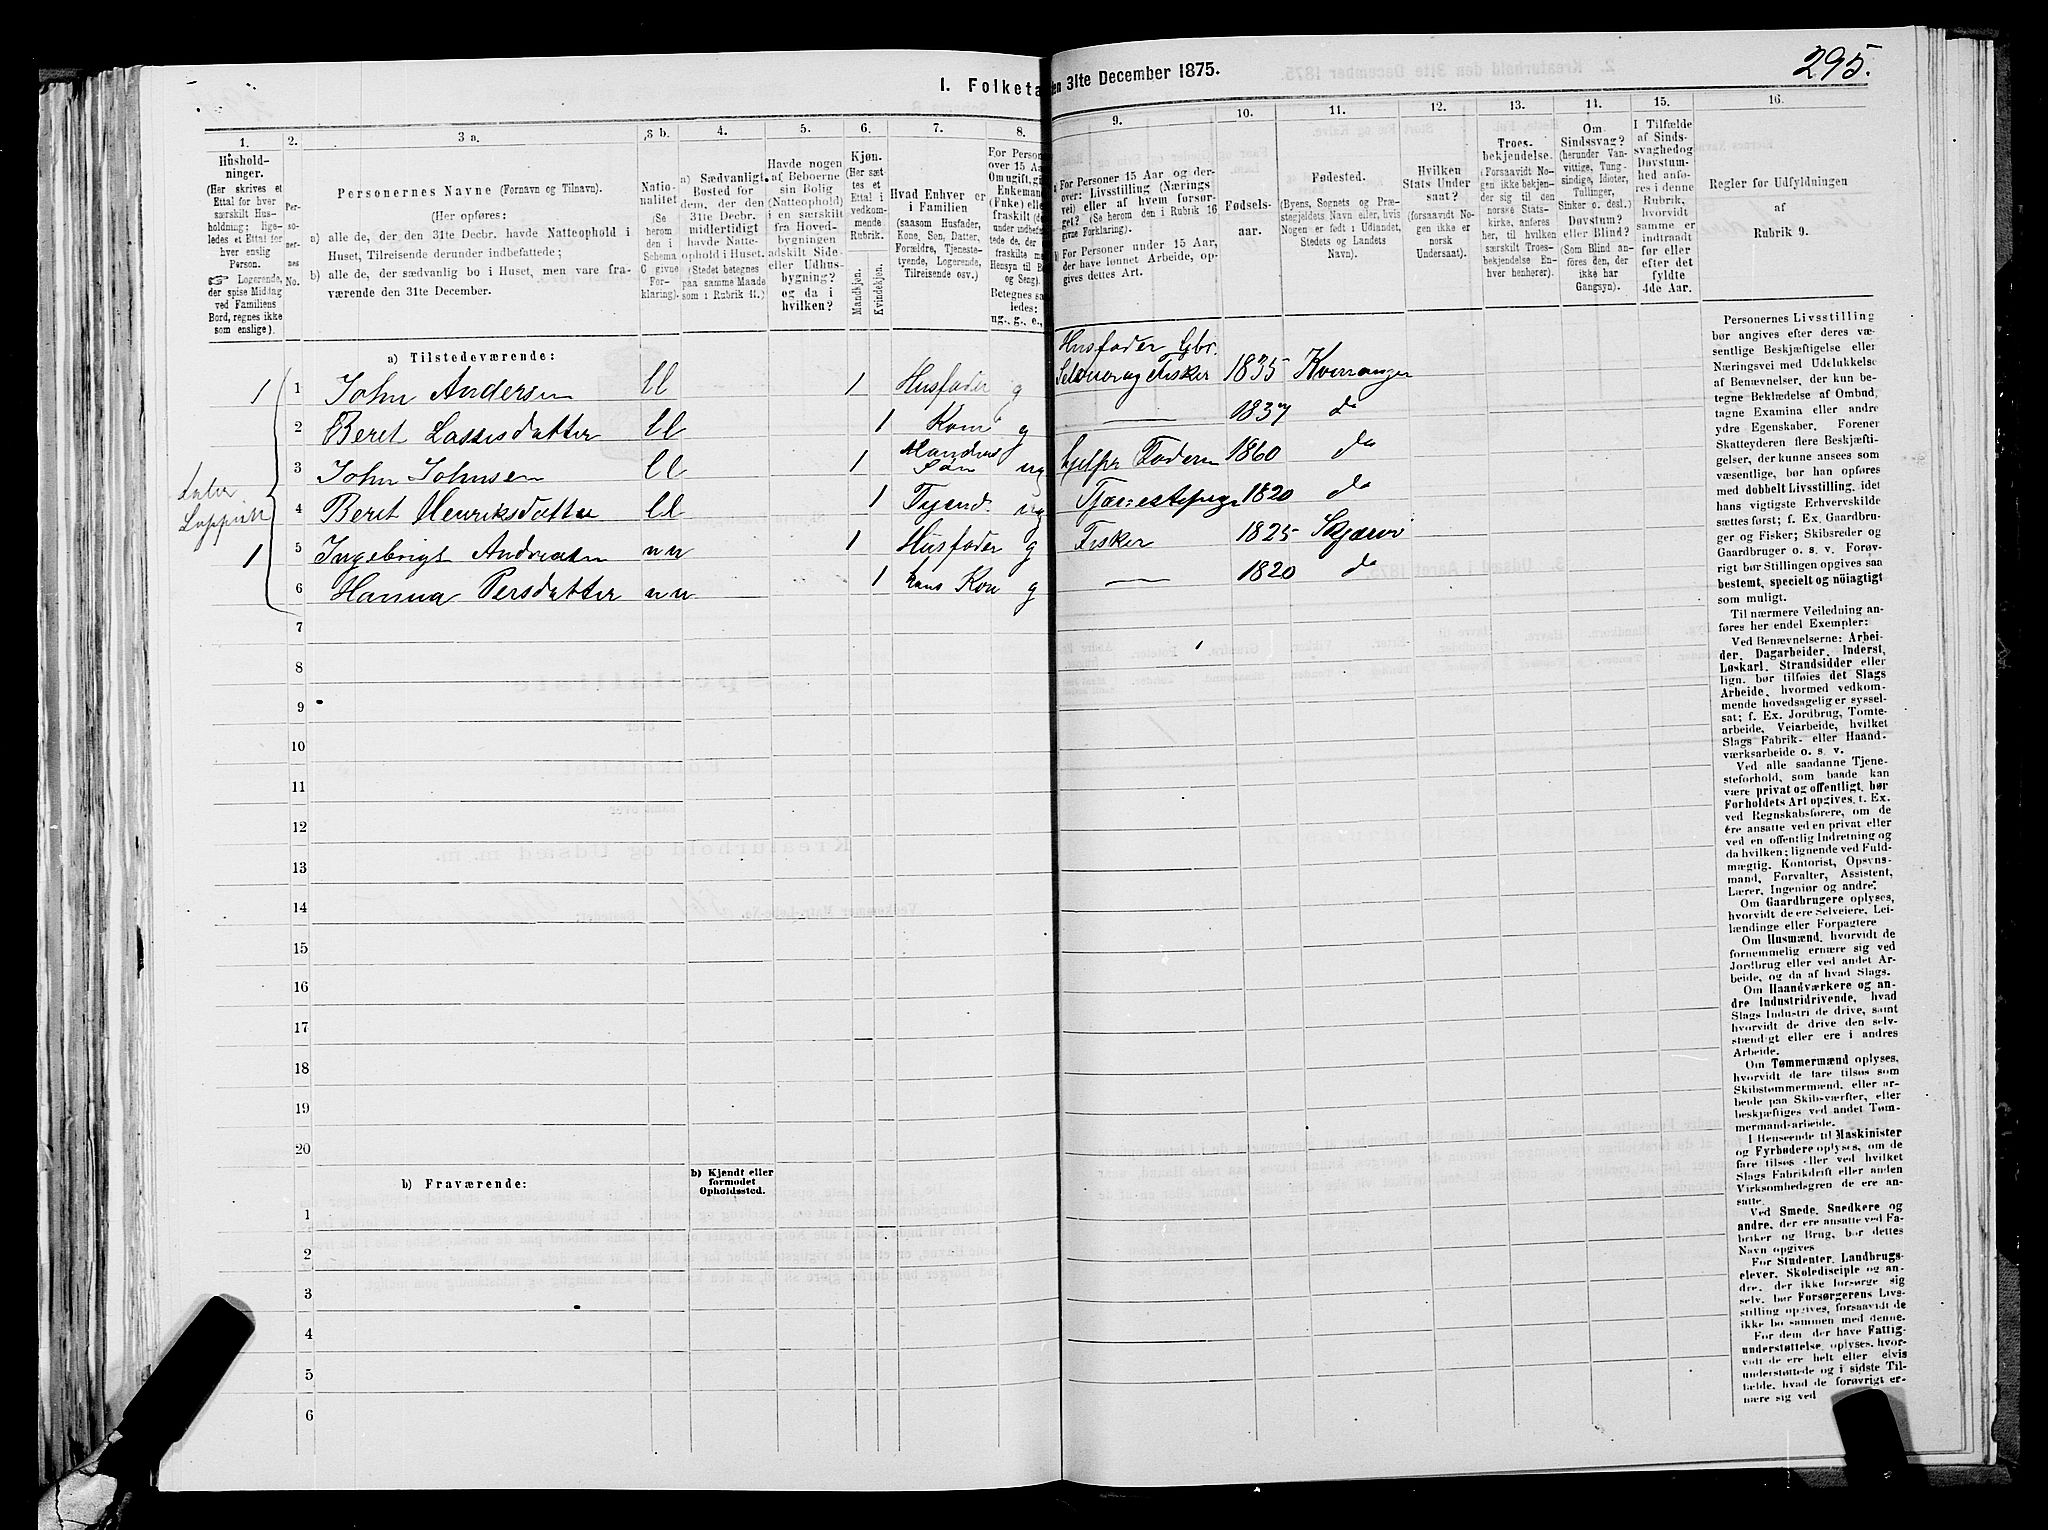 295.
I. Folketa
en 31te December 1875.
1.
2.
3 a.
3 b.
4.
5.
6.
7.
8.
9.
10.
11.
12.
13.
14.
15.
16.
Hushold-
ninger.
(Her skrives et
Ettal for hver
særskilt Hus-
holdning; lige-
ledes et Ettal for
hver enslig
Person.
☞ Logerende,
der spise Middag
ved Familiens
Bord, regnes ikke
som enslige).
Per-
soner-
nes
No.
Personernes Navne (Fornavn og Tilnavn).
(Her opføres:
a) alle de, der den 31te Decbr. havde Natteophold i
Huset, Tilreisende derunder indbefattede;
b) alle de, der sædvanlig bo i Huset, men vare fra-
værende den 31te December.
Natio-
nalitet
(Se
herom
den i
Schema
C givne
For-
klaring).
a) Sædvanligt
Bosted for
dem, der den
31te Decbr.
midlertidigt
havde Natte-
ophold i Huset.
(Stedet betegnes
paa samme Maade
som i Rubrik 11.)
Havde nogen
af Beboerne
sin Bolig
(Natteophold)
i en særskilt
fra Hoved-
bygningen
adskilt Side-
eller Udhus-
bygning?
og da i
hvilken?
Kjøn.
(Her sæt-
tes et
Ettal i
vedkom-
mende
Rubrik.
Mandkjøn.
Kvindekjøn.
Hvad Enhver er
i Familien
(saasom Husfader,
Kone, Søn, Datter,
Forældre, Tjeneste-
tyende, Logerende,
Tilreisende osv.)
For Person
over 15 Aa
Om ugift, gi
Enkeman
(Fnke) elle
fraskilt (d
under indb
tede de, der
fraskilte m
Hensyn til B
og Seng).
Betegnes sa
ledes:
ug., g., e.,
a For Personer 15 Aar og der-
over: Livsstilling (Nærings
vei) eller af hvem forsør-
get? (Se herom de i Rubrik 16
givne Forklaring).
b) For Personer under 15 Aar,
der have lønnet Arbeide, op-
gives dettes Art.
Fødsels-
aar.
Fødested.
(Byens, Sognets og Præ-
stegjeldets Navn eller, hvis
Nogen er født i Udlandet,
Stedets og Landets
Navn).
Hvilken
Stats Under
saat?
(forsaavidt No-
gen ikke er
norsk
Undersaat).
Troes-
bekjendelse.
(Forsaavidt No-
gen ikke bekjen-
der sig til den
norske Stats-
kirke, anføres
her, til hvilken
særskilt Troes-
bekjendelse En-
hver henhører).
Om
Sindssvag?
(herunder Van-
vittige, Tung-
sindige, Idioter,
Tullinger,
Sinker o. desl.)
Døvstum?
eller Blind?
(Som Blind an-
føres den, der
ikke har
Gangsyn).
I Tilfælde
af Sinds-
svaghed og
Døvstum-
hed anfø-
res i denne
Rubrik,
hvorvidt
samme er
indtraadt
før eller
efter det
fyldte
4de Aar.
Regler for Udfyldningen
af
Rubrik 9.
a) Tilstedeværende:
Husfader Gbr.
1 1 John Andersen ll 1 Husfader g Selveier og Fisker 1835 Kvænanger
2 Beret Lassesdatter ll 1 Kone g — 1837 do
3 John Johnsen ll 1 Mandens Søn ug hjelper Faderen 1860 do
4 Beret Henriksdatter ll 1 Tyend. ug Tjenestepige 1820 do
1 5 Ingebrigt Andreasen n n 1 Husfader g Fisker 1825 Skjærvø
6 Hanna Persdatter n n 1 hans Kon g — 1820 do
7
8
9
10
11
12
13
14
15
16
17
18
19
20
b) Fraværende:
b) Kjendt eller
formodet
Opholdssted.
1
2
3
4
5
6
Personernes Livsstilling
bør angives efter deres væ-
sentlige Beskjæftigelse eller
Næringsvei med Udelukkelse
af Benævnelser, der kun be-
tegne Beklædelse af Ombud,
tagne Examina eller andre
ydre Egenskaber. Forener
Skatteyderen flere Beskjæfti-
gelser, der kunne ansees som
væsentlige, bør han opføres
med dobbelt Livsstilling, idet
hans vigtigste Erhvervskilde
sættes først; f. Ex. Gaardbru-
ger og Fisker; Skibsreder og
Gaardbruger o. s. v. Forøv-
rigt bør Stillingen opgives saa
bestemt, specielt og nøiagtigt
som muligt.
Til nærmere Veiledning an-
føres her endel Exempler:
Ved Benævnelserne: Arbei-
der, Dagarbeider, Inderst,
Løskarl, Strandsidder eller
lign. bør tilføies det Slags
Arbeide, hvormed vedkom-
mende hovedsagelig er syssel-
sat; f. Ex. Jordbrug, Tømte-
arbeide, Veiarbeide, hvilket
Slags Fabrik- eller Haand-
værksarbeide o. s. v.
Ved alle saadanne Tjene-
steforhold, som baade kan
være privat og offentligt, bør
Forholdets Art opgives, t. Ex.
ved Regnskabsførere, om de
ere ansatte ved en privat eller
ved en offentlig Indretning og
da hvilken; lignende ved Fuld-
mægtig, Kontorist, Opsyns-
mand, Forvalter, Assistent,
Lærer, Ingeniør og andre.
Om Gaardbrugere oplyses,
hvorvidt de ere Selveiere, Lei-
lændinge eller Forpagtere
Om Husmænd, hvorvidt de
fornemmelig ernære sig ved
Jordbrug eller ved andet Ar-
beide, og da af hvad Slags.
Om Haandværkere og an-
dre Industridrivende, hvad
Slags Industri de drive, samt
hvorvidt de drive den selv-
stændigt eller ere i andres
Arbeide.
Om Tømmermænd oplyses,
hvorvidt de fare tilsøs som
Skibstømmermænd, eller ar-
beide paa Skibsværfter, eller
beskjæftiges ved andet Tøm-
mermandsarbeide.
I Henseende til Maskinister
og Fyrbødere oplyses, om de
fare tilsøs eller ved hvilket
Slags Fabrikdrift eller anden
Virksomhedsgren de ere an-
satte.
Ved Smede, Snedkere og
andre, der ere ansatte ved Fa-
briker og Brug, bør dettes
Navn opgives
For Studenter, Landbrugs-
elever, Skoledisciple og an-
dre, der ikke forsørge sig
selv, bør Forsørgerens Livs-
stilling opgives, forsaavidt de
ikke bo sammen med denne.
For dem, der have Fattig-
understøttelse, oplyses, hvor-
vidt de ere helt eller elvis
understøttede og i sidste Til-
fælde, hvad de forøvrigt er-
nære sig ved